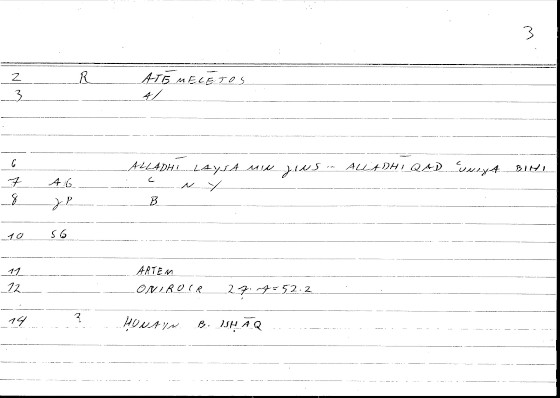 3
2 R ATĒMELĒTOS
3 A/
6 ALLADHĪ LAYSA MIN JINS -- ALLADHĪ QAD ʿUNIYA BIHI
7 AG ʿ N Y
8 JP B
10 SG
11 ARTEM
12 ONIROCR 24.4=52.2
14 ? ḤUNAYN B. ISḤĀQ